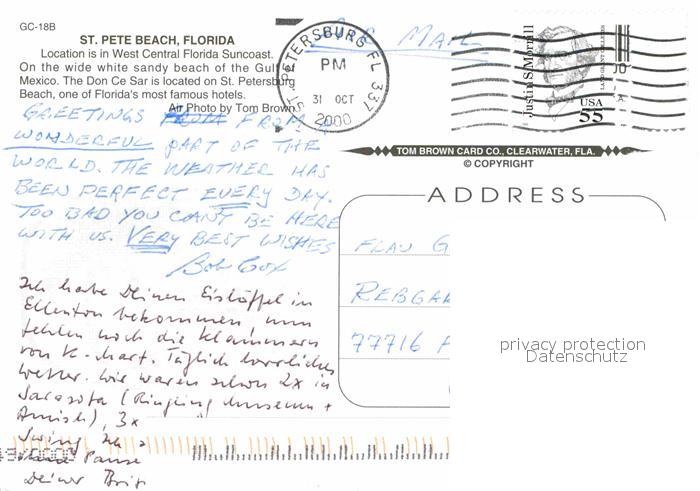 GC-18B
ST. PETE BEACH, FLORIDA
Location is in West Central Florida Suncoast.
On the wide white sandy beach of the Gulf
Mexico. The Don Ce Sar is located on St. Petersburg
Beach, one of Florida's most famous hotels.
Air Photo by Tom Brown
AIR MAIL
ST. PETERSBURG FL 337
PM
31 OCT
2000
Justin S. Morrill
USA
55
TOM BROWN CARD CO., CLEARWATER, FLA.
© COPYRIGHT
GREETINGS FROM FROM A
WONDERFUL PART OF THE
WORLD. THE WEATHER HAS
BEEN PERFECT EVERY DAY.
TOO BAD YOU CAN'T BE HERE
WITH US. VERY BEST WISHES
Bob Cox
ADDRESS
FLAU G
REBGA
77716
privacy protection
Datenschutz
Ich habe Deinen Eislöffel in
Ellenton bekommen, nun
fehlen noch die Klammern
von K-mart. Täglich herrliches
Wetter. Wir waren schon 2x in
Sarasota (Ringling Museum +
Amish), 3x
Swing
Pause
Deine